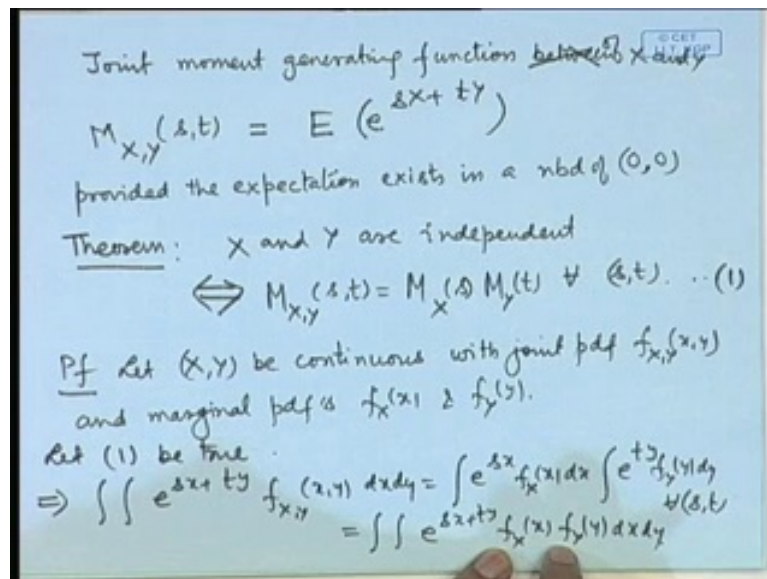 © CET
I.I.T. KGP
Joint moment generating function between X and Y
M_{X,Y}(s,t) = E(e^{sX+tY})
provided the expectation exists in a nbd of (0,0)
Theorem: X and Y are independent
⇔ M_{X,Y}(s,t) = M_X(s) M_Y(t) ∀ (s,t). ..(1)
Pf Let (X,Y) be continuous with joint pdf f_{X,Y}(x,y)
and marginal pdf's f_X(x) & f_Y(y).
Let (1) be true.
⇒ ∫∫ e^{sx+ty} f_{X,Y}(x,y) dxdy = ∫e^{sx} f_X(x)dx ∫e^{ty} f_Y(y)dy
∀(s,t
= ∫∫ e^{sx+ty} f_X(x) f_Y(y) dxdy